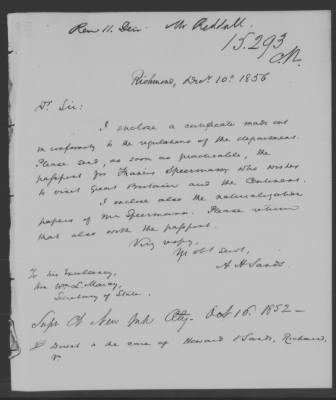 Mr Reddall.
15.293
Richmond, Decr. 10th 1856
Dr Sir:
I enclose a certificate made out
in conformity to the regulations of the department.
Please send, as soon as practicable, the
passport for Francis Speermann who wishes
to visit Great Britain and the Continent.
I enclose also the naturalization
papers of Mr Speermann. Please return
that also with the passport.
Very respy,
Yr obt servt,
A H Sands.
To his Excellency,
Hon Wm L. Marcy,
Secretary of State.
Supr Ct New York City. Oct 16. 1852 —
Direct to the care of Howard & Sands, Richmond,
Va